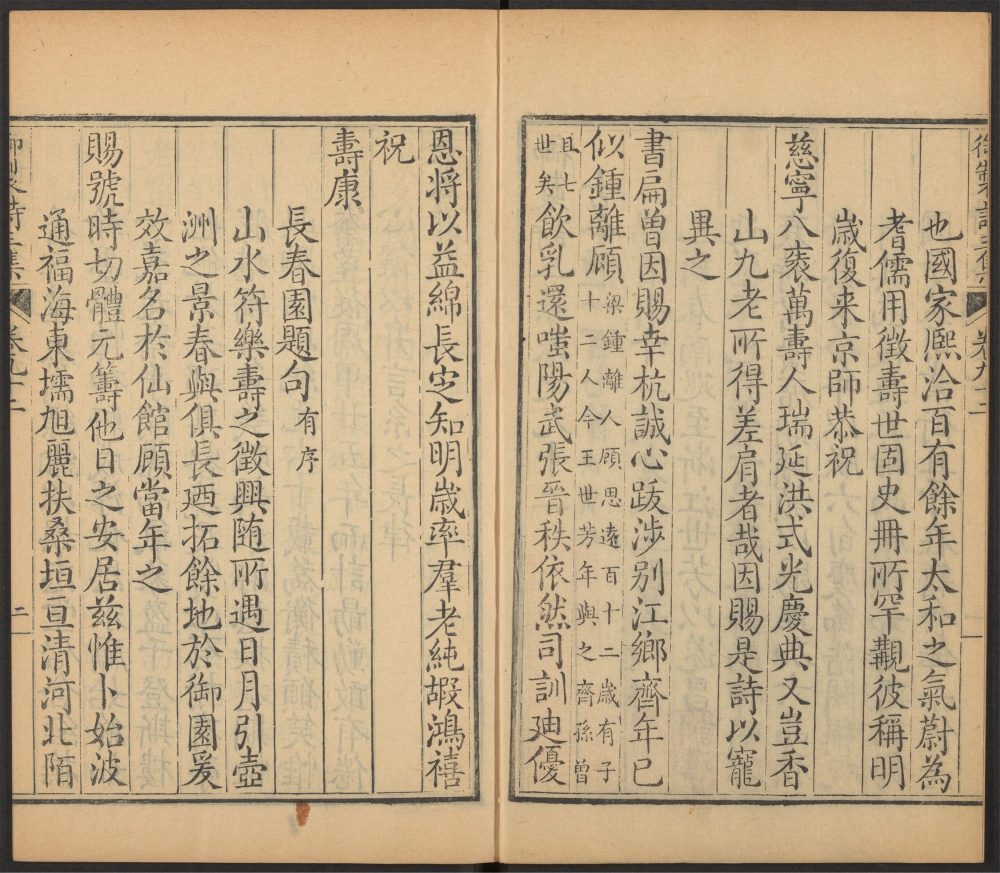 御製詩三集
卷九十二
一
也國家熈洽百有餘年太和之氣蔚為
耆儒用徵壽世固史冊所罕覯彼稱明
歲復来京師恭祝
慈寧八袠萬壽人瑞延洪式光慶典又豈香
山九老所得差肩者哉因賜是詩以寵
異之
書扁曾因賜幸杭誠心跋涉別江鄉齊年已
似鍾離顧梁鍾離人顧思遠百十二歲有子
十二人今王世芳年與之齊孫曾
且七
世矣飲乳還嗤陽武張晉秩依然司訓廸優
恩将以益綿長定知明歲率羣老純嘏鴻禧
祝
壽康
長春園題句有序
山水符樂壽之徵興随所遇日月引壺
洲之景春與俱長廼拓餘地於御園爰
效嘉名於仙館顧當年之
賜號時切體元籌他日之安居兹惟卜始波
通福海東堧旭麗扶桑垣亘清河北陌
御製詩三集
卷九十二
二